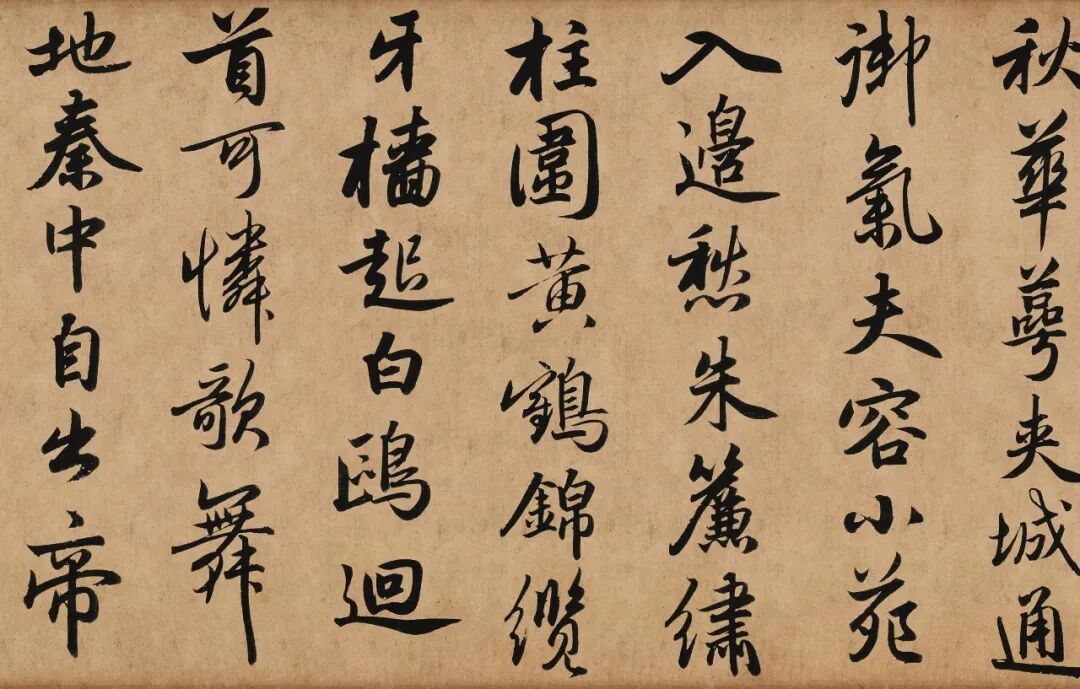 秋華萼夾城通
御氣夫容小苑
入邊愁朱簾繡
柱圍黄鶴錦纜
牙檣起白鷗迴
首可憐歌舞
地秦中自古帝